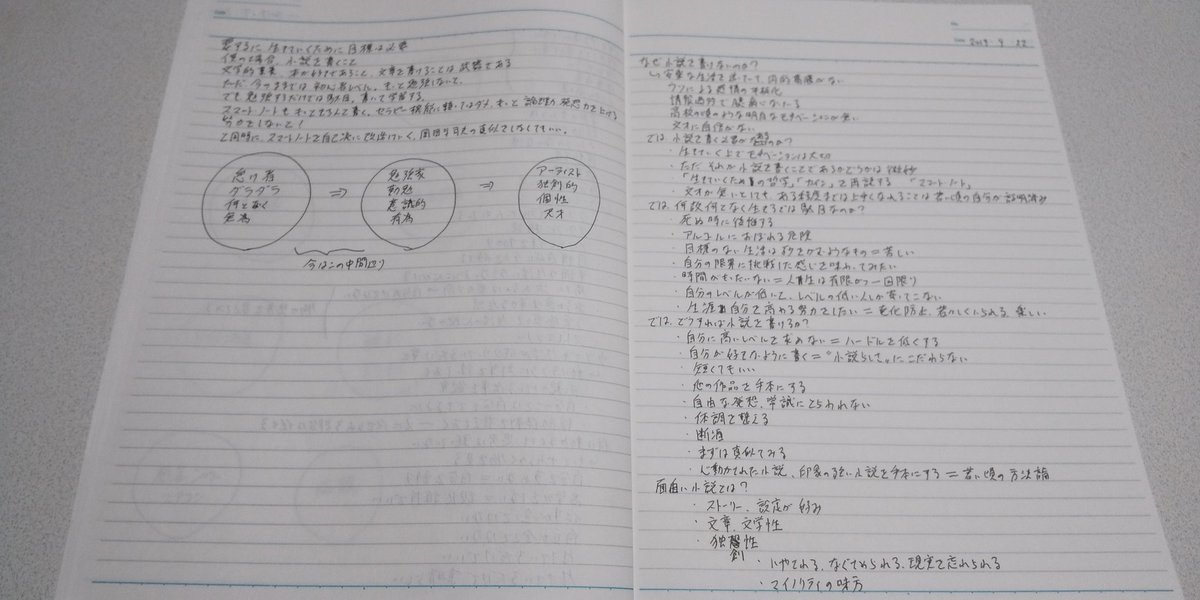 要するに生きていくために目標は必要
僕の場合、小説を書くこと
文学的素養、本が好きであること、文章を書けることは武器である
ただ今のままでは初心者レベル。もっと勉強しないと。
でも勉強するだけでは駄目。書いて学習する。
スマートノートももっとちゃんと書く。セラピー機能に頼ってはダメ。もっと論理の発想力を上げる
努力をしないと!
と同時に、スマートノートで自己流に改造していく。岡田斗司夫の真似でなくてもいい。
怠け者
グラグラ
何となく
無為
⇒
勉強家
勤勉
意識的
有為
⇒
アーティスト
独創的
個性
天才
今はこの中間辺り
2019. 9. 22
なぜ小説を書けないのか?
↳ 安楽な生活を送っていて、目的意識がない
ウツによる感情の平板化
情報過多で臆病になってる
高校の頃のような明白なモチベーションが無い
文才に自信がない
では、小説を書く必要があるのか?
・生きていく上でモチベーションは大切
・ただそれが小説を書くことであるかどうかは微妙
「生きていくための哲学」「カイン」を再読する 「スマートノート」
・文才が無いとしても、ある程度までは上手くなれることは若い頃の自分が証明済み
では、何故何となく生きるでは駄目なのか?
・死ぬ時に後悔する
・アルコールにおぼれる危険
・目標のない生活は砂をかむようなもの=苦しい
・自分の限界に挑戦した感じを味わってみたい
・時間がもったいない=人生は有限かつ一回限り
・自分のレベルが低いと、レベルの低い人しか寄ってこない
・生涯自分を高める努力をしたい=老化防止、若々しくいられる、楽しい
では、どうすれば小説を書けるか?
・自分に高いレベルを求めない=ハードルを低くする
・自分が好きなように書く="小説らしさ"にこだわらない
・短くてもいい
・他の作品を手本にする
・自由な発想、常識にとらわれない
・体調を整える
・断酒
・まずは真似てみる
・心動かされた小説、印象の強い小説を手本にする=若い頃の方法論
面白い小説とは?
・ストーリー、設定が好み
・文章、文学性
・独創性
・いやされる、なぐさめられる、現実を忘れられる
・マイノリティの味方